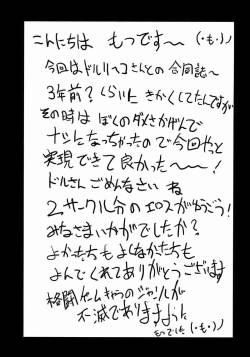 こんにちは もつです〜 (・も・)ノ
今回はドルリヘコさんとの合同誌〜
3年前?くらいに きかくしてたんですが
その時は ぼくのダメさかげんで
ナシになっちゃったので今回やっと
実現できて良かった〜〜!
ドルさんごめんなさい ね
2サークル分のエロスがゆうごう!
みなさまいかがでしたか?
よかったちも よくなかったちも
よんでくれてありがとうございます
格闘ゲームキャラのジャンルが
不滅でありますように
もつでした (・も・)ノ